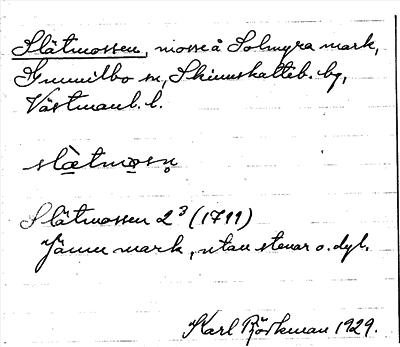 Slätmossen, mosse å Solmyra mark,
Gunnilbo sn, Skinnskatteb. bg,
Västmanl. l.
slä̀tmo̠sn̥
Slätmossen 2³ (1711)
Jämn mark, utan stenar o. dyl.
Karl Björkman 1929.